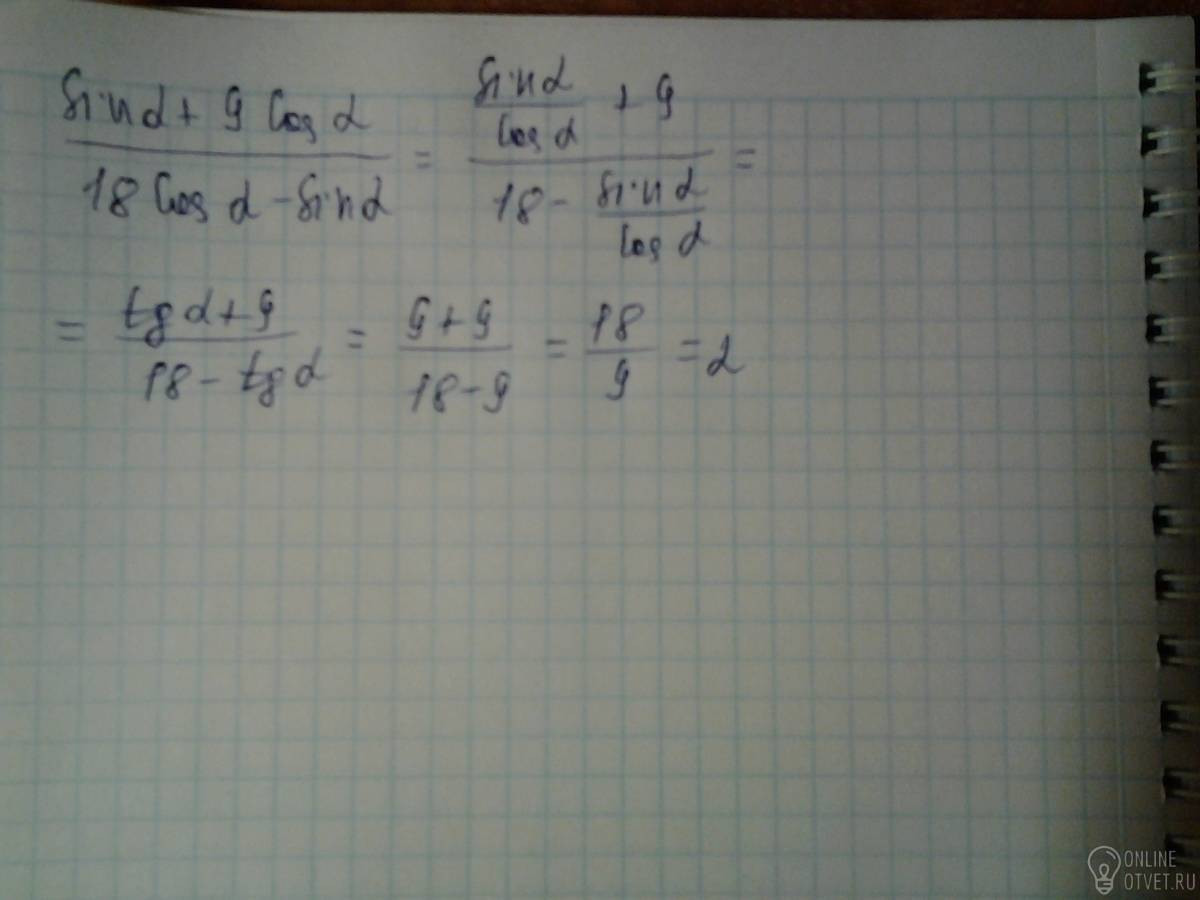 (sin α + 9 cos α)/(18 cos α - sin α) = (sin α/cos α + 9)/(18 - sin α/cos α) =
= (tg α + 9)/(18 - tg α) = (9 + 9)/(18 - 9) = 18/9 = 2
ONLINE
OTVET.RU